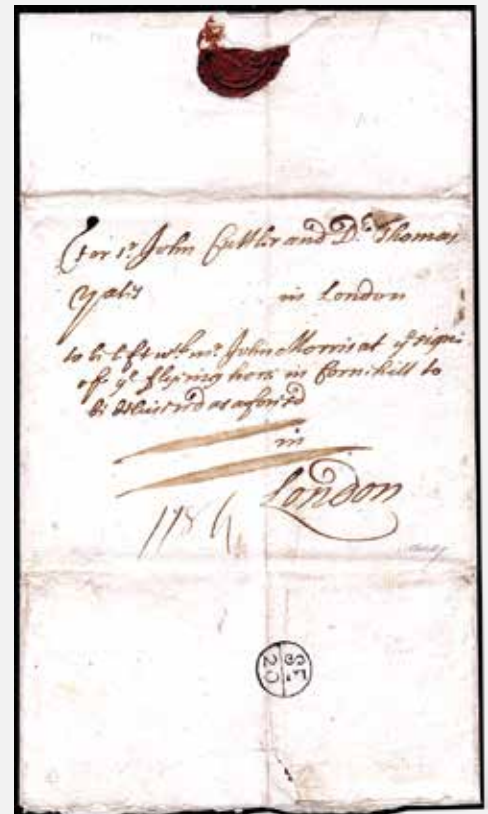 For Sr. John Cuttler and Dr. Thomas
Yales in London
to be left wth mr. John Morris at ye signe
of ye flying hors in Cornehill to
be deliuered as aforesd
in
London
SE
20